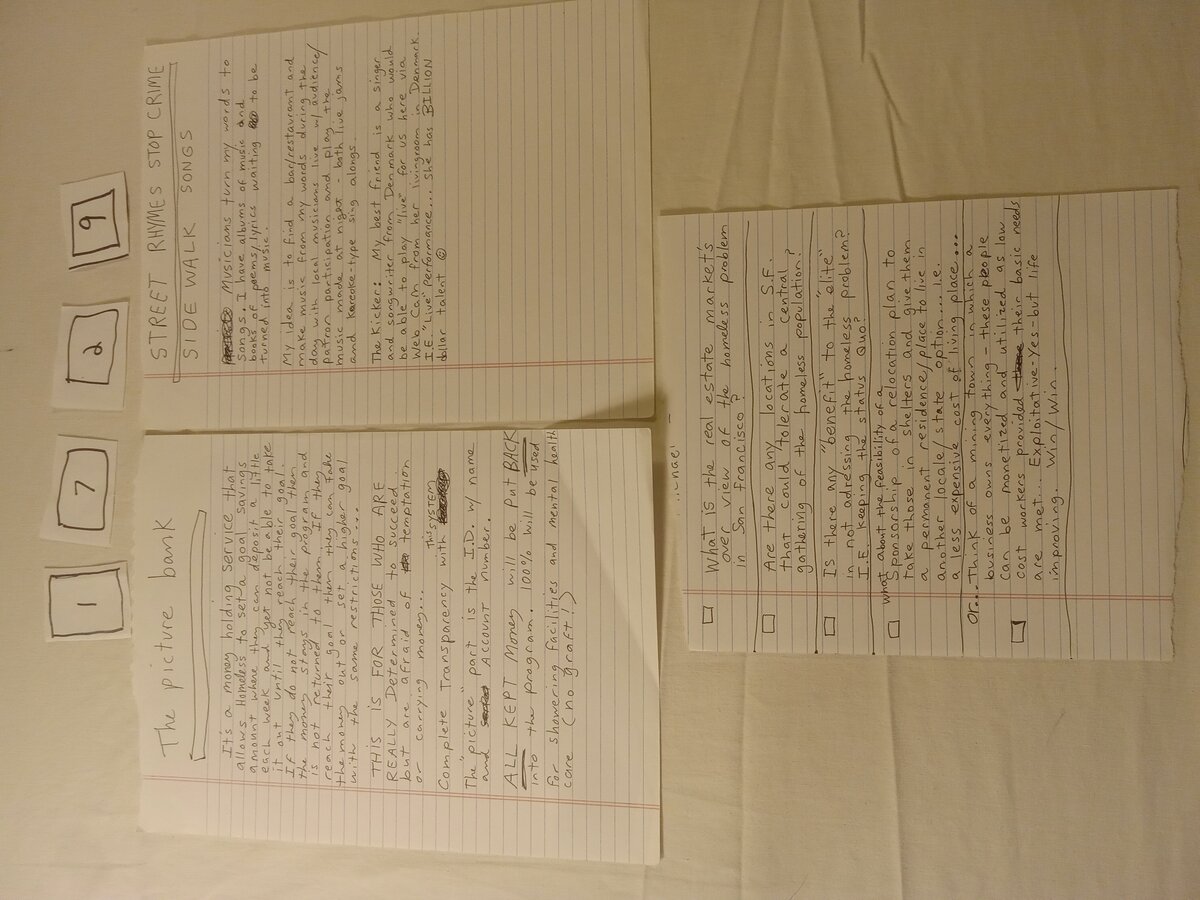 1 7 2 9
The picture bank
It's a money holding service that
allows Homeless to set a goal savings
amount where they can deposit a little
each week and yet not be able to take
it out until they reach their goal..
If they do not reach their goal then
the money stays in the program and
is not returned to them. If they
reach their goal then they can take
the money out or set a higher goal
with the same restrictions....
THIS IS FOR THOSE WHO ARE
REALLY Determined to succeed
but are afraid of temptation
or carrying money...
Complete Transparency with This SYSTEM
The "picture" part is the I.D. w/ name
and Account number.
ALL KEPT Money will be put BACK
into the program. 100% will be used
for showering facilities and mental health
care (no graft!)
STREET RHYMES STOP CRIME
SIDE WALK SONGS
Musicians turn my words to
songs. I have albums of music and
books of poems/lyrics waiting to be
turned into music.
My idea is to find a bar/restaurant and
make music from my words during the
day with local musicians live w/ audience/
patron participation and play the
music made at night - both live jams
and kareoke-type sing alongs.
The Kicker: My best friend is a singer
and songwriter from Denmark who would
be able to play "live" for us here via
Web Cam from her livingroom in Denmark.
I.E. "Live" performance... She has BILLION
dollar talent ☺
What is the real estate market's
over view of the homeless problem
in San francisco?
Are there any locations in S.F.
that could tolerate a central
gathering of the homeless population?
Is there any "benefit" to the "elite"
in not adressing the homeless problem?
I.E. keeping the status Quo?
what about the feasibility of a
Sponsorship of a relocation plan to
take those in shelters and give them
a permanent residence/place to live in
another locale/state option.... i.e.
a less expensive cost of living place...
or... Think of a mining town in which a
business owns everything - these people
can be monetized and utilized as low
cost workers provided their basic needs
are met... Exploitative-Yes-but life
improving. Win/Win.